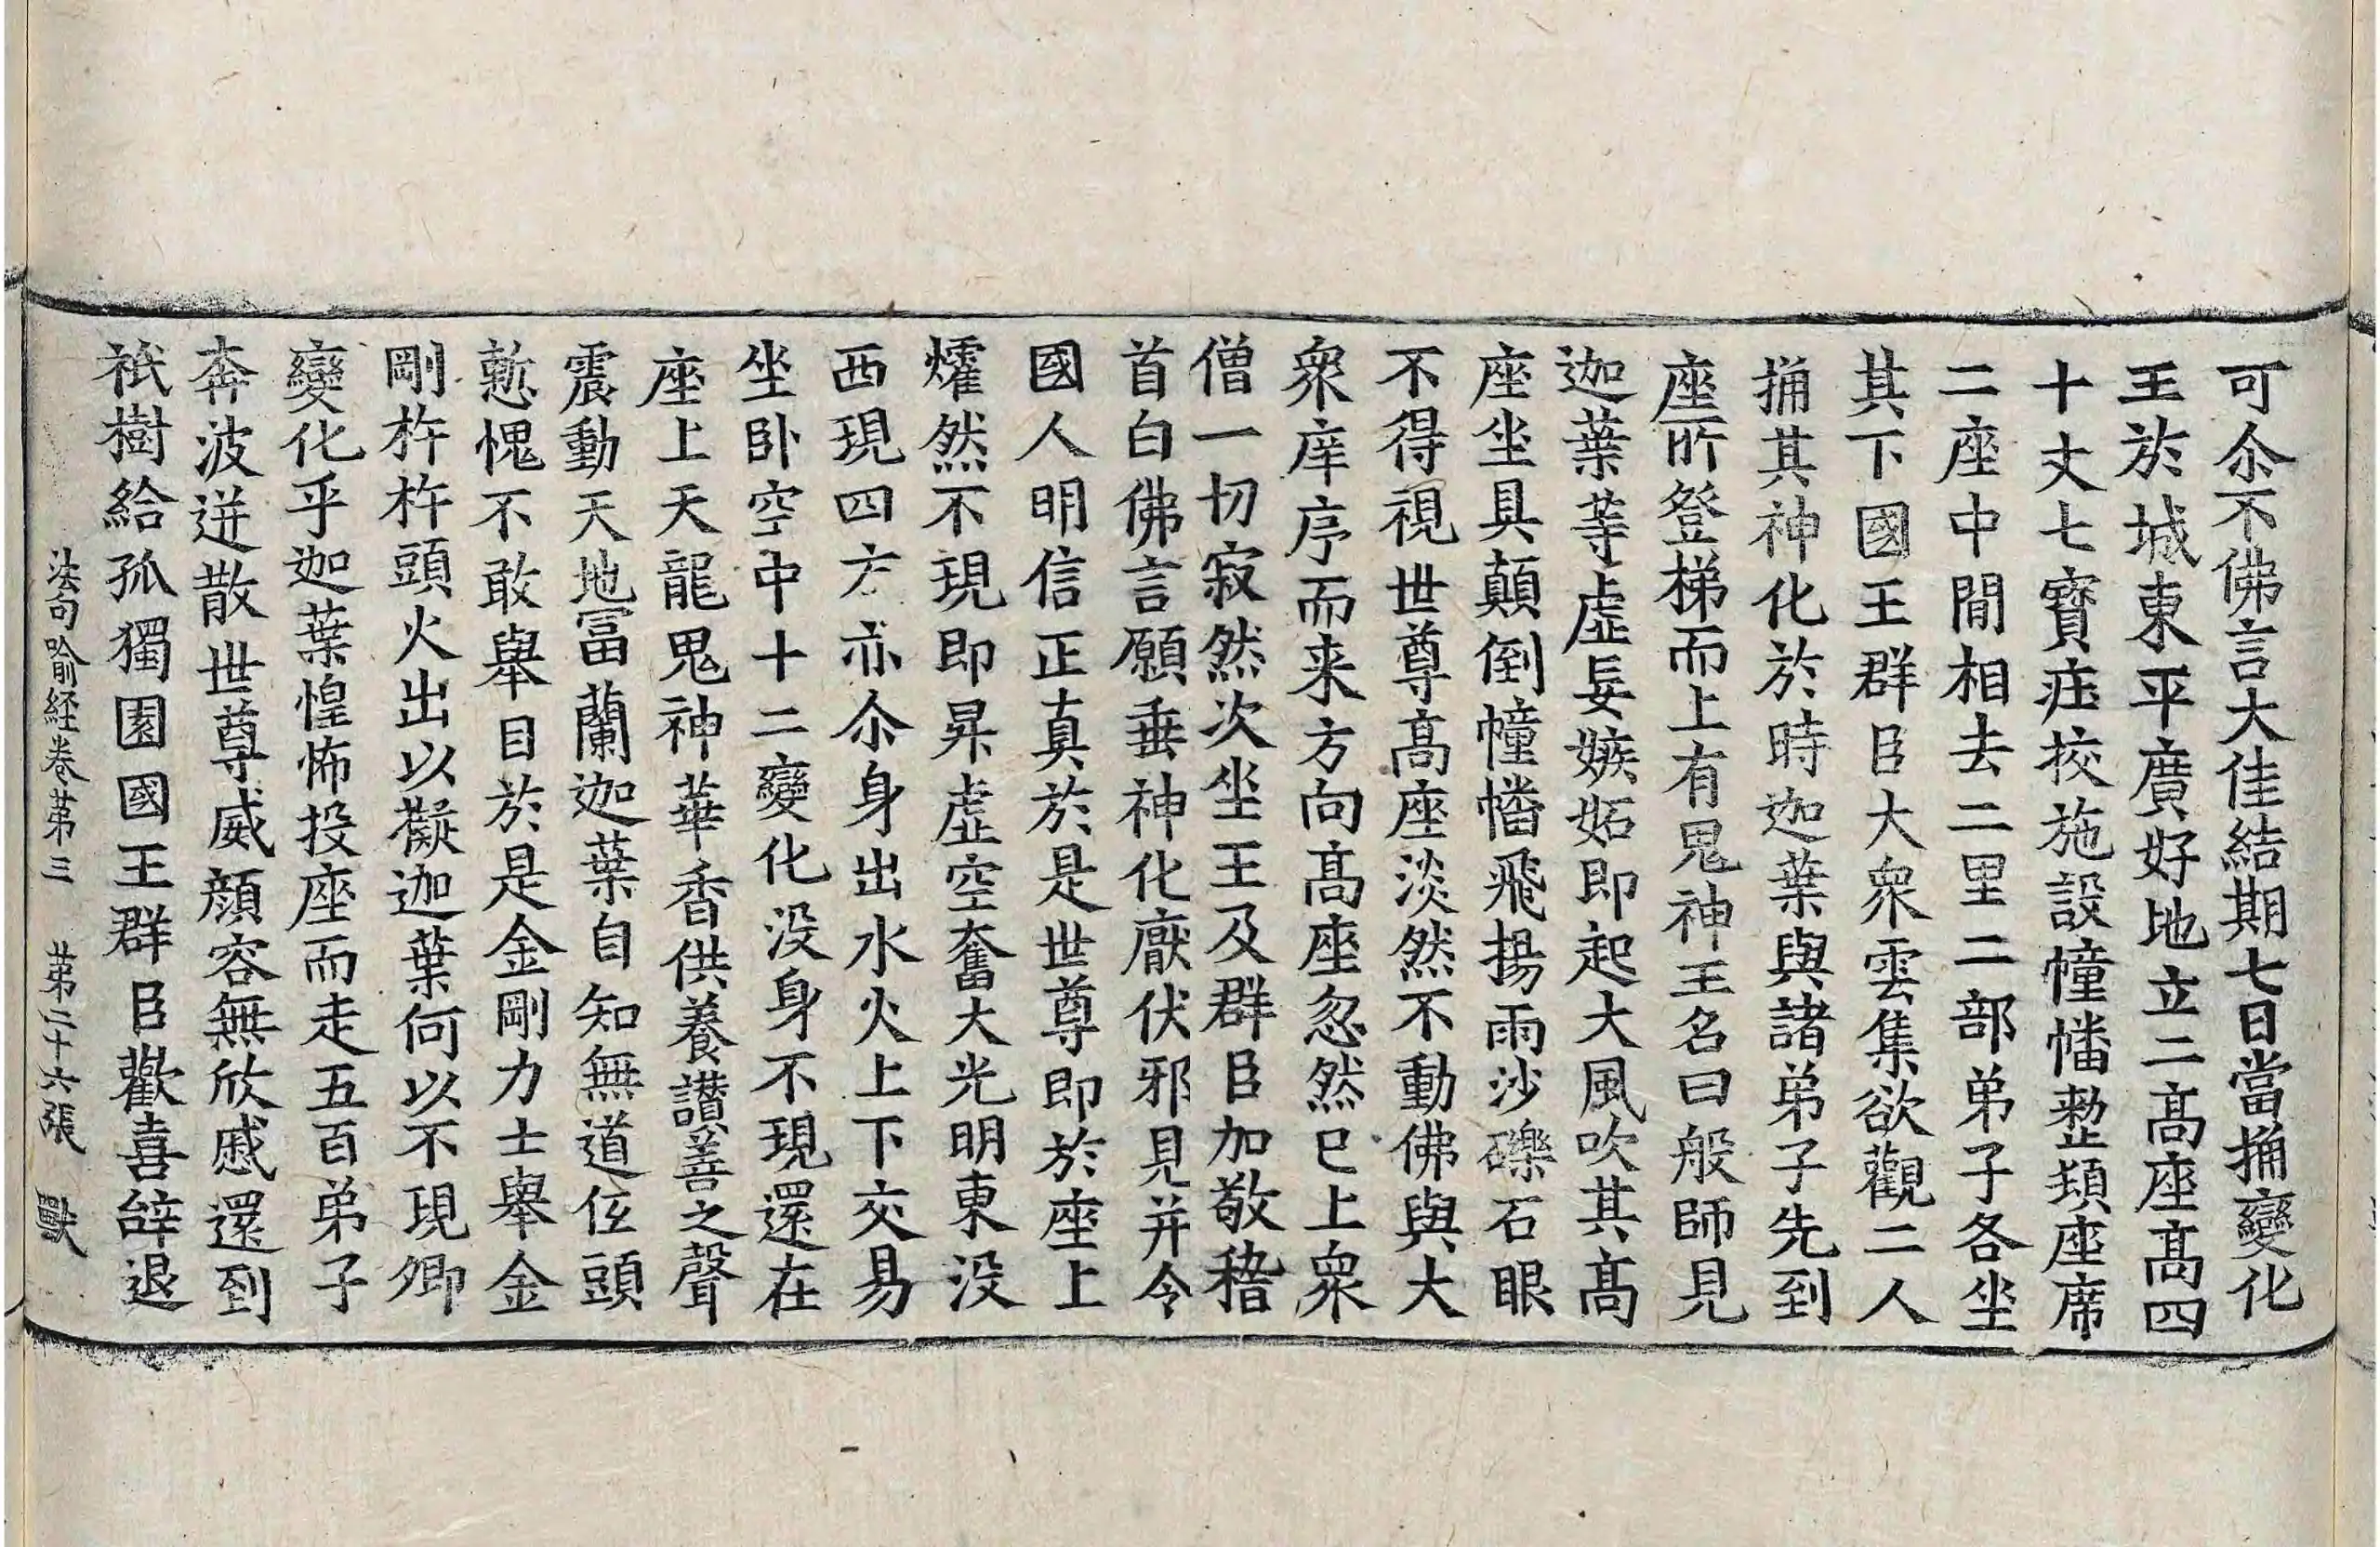 可尒不佛言大佳結期七日當捔變化
王於城東平廣好地立二髙座髙四
十丈七寳莊挍施設幢幡整頓座席
二座中閒相去二里二部弟子各坐
其下國王群臣大衆雲集欲觀二人
捔其神化於時迦葉與諸弟子先到
座所登梯而上有鬼神王名曰般師見
迦葉等虛妄嫉妬即起大風吹其髙
座坐具顛倒幢幡飛揚雨沙礫石眼
不得視世尊髙座淡然不動佛與大
衆庠序而来方向髙座忽然已上衆
僧一切寂然次坐王及群臣加敬稽
首白佛言願垂神化厭伏邪見并令
國人明信正真於是世尊即於座上
㸌然不現即昇虛空奮大光明東没
西現四方亦尒身出水火上下交易
坐臥空中十二變化没身不現還在
座上天龍鬼神華香供養讃善之聲
震動天地冨蘭迦葉自知無道低頭
慙愧不敢舉目於是金剛力士舉金
剛杵杵頭火出以擬迦葉何以不現卿
變化乎迦葉惶怖投座而走五百弟子
奔波迸散世尊威顔容無欣慼還到
祇樹給孤獨園國王群臣歡喜辝退
法句喻経卷第三　第二十六張　獸